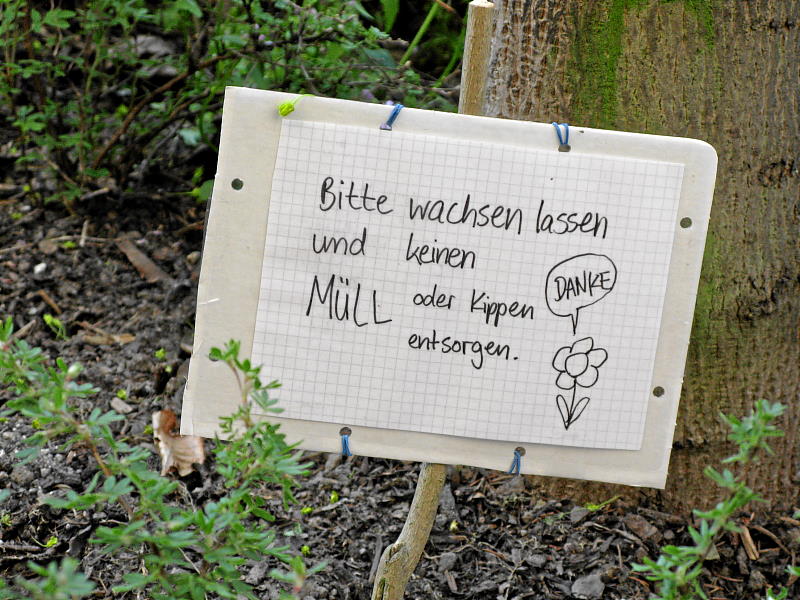 Bitte wachsen lassen
und keinen
MÜLL oder Kippen
entsorgen.
DANKE